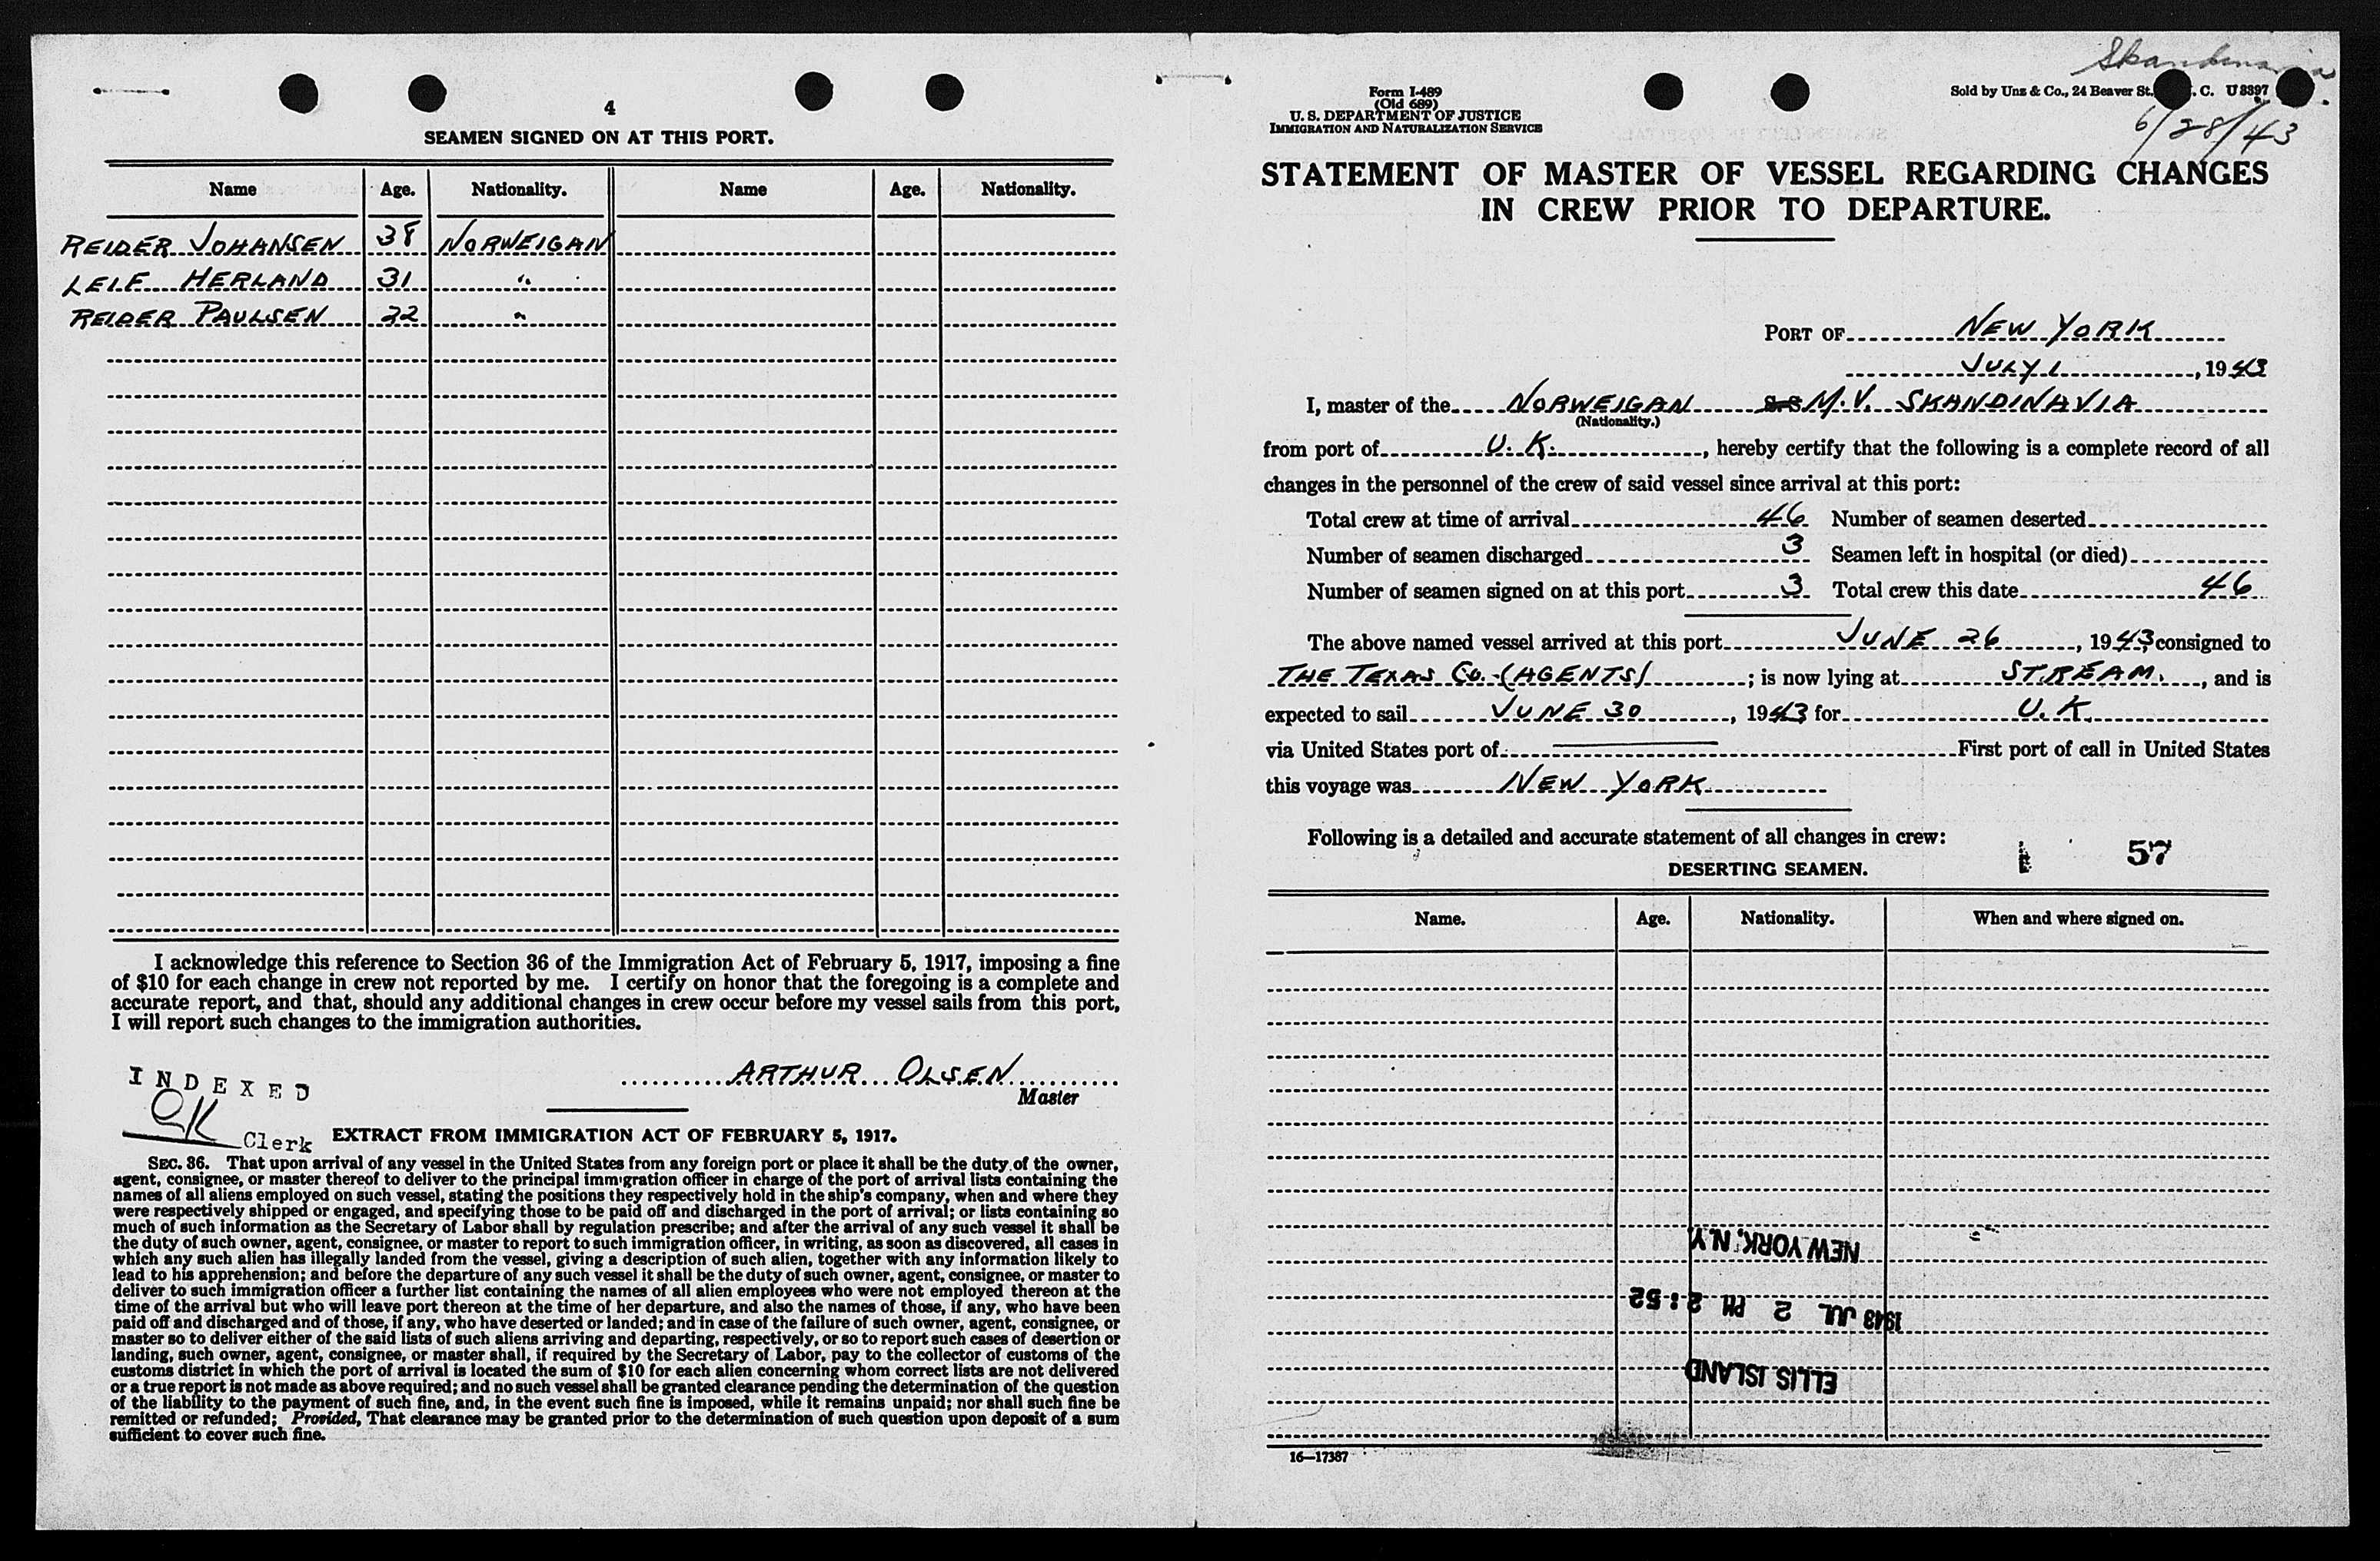 4
SEAMEN SIGNED ON AT THIS PORT.
Name Age. Nationality. Name Age. Nationality.
REIDER JOHANSEN 38 NORWEIGAN
LEIF HERLAND 31 "
REIDER PAULSEN 22 "
I acknowledge this reference to Section 36 of the Immigration Act of February 5, 1917, imposing a fine
of $10 for each change in crew not reported by me. I certify on honor that the foregoing is a complete and
accurate report, and that, should any additional changes in crew occur before my vessel sails from this port,
I will report such changes to the immigration authorities.
ARTHUR OLSEN
Master
INDEXED
OK
Clerk
EXTRACT FROM IMMIGRATION ACT OF FEBRUARY 5, 1917.
SEC. 36. That upon arrival of any vessel in the United States from any foreign port or place it shall be the duty of the owner,
agent, consignee, or master thereof to deliver to the principal immigration officer in charge of the port of arrival lists containing the
names of all aliens employed on such vessel, stating the positions they respectively hold in the ship's company, when and where they
were respectively shipped or engaged, and specifying those to be paid off and discharged in the port of arrival; or lists containing so
much of such information as the Secretary of Labor shall by regulation prescribe; and after the arrival of any such vessel it shall be
the duty of such owner, agent, consignee, or master to report to such immigration officer, in writing, as soon as discovered, all cases in
which any such alien has illegally landed from the vessel, giving a description of such alien, together with any information likely to
lead to his apprehension; and before the departure of any such vessel it shall be the duty of such owner, agent, consignee, or master to
deliver to such immigration officer a further list containing the names of all alien employees who were not employed thereon at the
time of the arrival but who will leave port thereon at the time of her departure, and also the names of those, if any, who have been
paid off and discharged and of those, if any, who have deserted or landed; and in case of the failure of such owner, agent, consignee, or
master so to deliver either of the said lists of such aliens arriving and departing, respectively, or so to report such cases of desertion or
landing, such owner, agent, consignee, or master shall, if required by the Secretary of Labor, pay to the collector of customs of the
customs district in which the port of arrival is located the sum of $10 for each alien concerning whom correct lists are not delivered
or a true report is not made as above required; and no such vessel shall be granted clearance pending the determination of the question
of the liability to the payment of such fine, and, in the event such fine is imposed, while it remains unpaid; nor shall such fine be
remitted or refunded; Provided, That clearance may be granted prior to the determination of such question upon deposit of a sum
sufficient to cover such fine.
Skandinavia
Form I-489
(Old 689)
U. S. DEPARTMENT OF JUSTICE
IMMIGRATION AND NATURALIZATION SERVICE
Sold by Unz & Co., 24 Beaver St. C. U 8397
6/28/43
STATEMENT OF MASTER OF VESSEL REGARDING CHANGES
IN CREW PRIOR TO DEPARTURE.
PORT OF NEW YORK
JULY 1, 1943
I, master of the NORWEIGAN S.S. M.V. SKANDINAVIA
(Nationality.)
from port of U.K., hereby certify that the following is a complete record of all
changes in the personnel of the crew of said vessel since arrival at this port:
Total crew at time of arrival 46 Number of seamen deserted
Number of seamen discharged 3 Seamen left in hospital (or died)
Number of seamen signed on at this port 3 Total crew this date 46
The above named vessel arrived at this port JUNE 26, 1943 consigned to
THE TEXAS Co. (AGENTS); is now lying at STREAM, and is
expected to sail JUNE 30, 1943 for U.K.
via United States port of First port of call in United States
this voyage was NEW YORK
Following is a detailed and accurate statement of all changes in crew:
57
DESERTING SEAMEN.
Name. Age. Nationality. When and where signed on.
NEW YORK, N.Y.
1943 JUL 2 PM 2:52
ELLIS ISLAND
16—17387